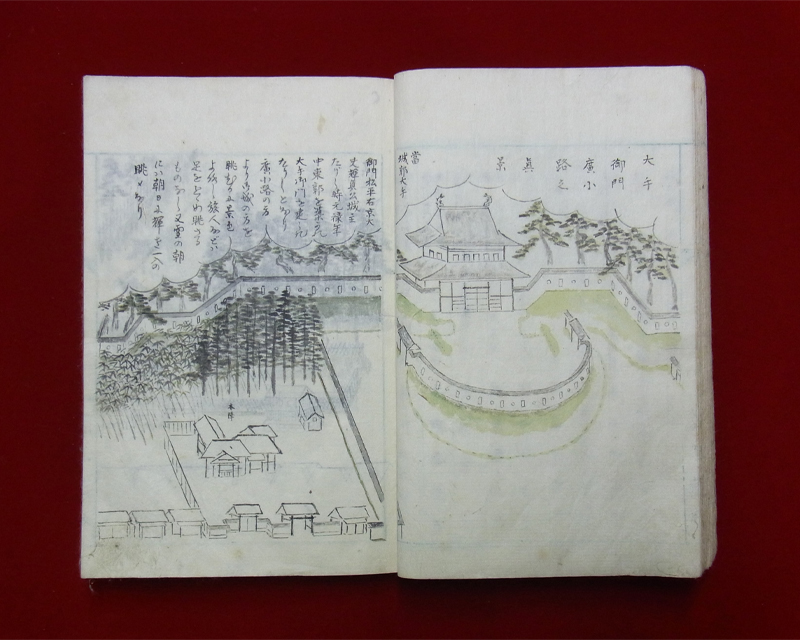 大手
御門
廣小
路之
眞
景
當
城郭大手
御門松平右京大
夫輝貞公城主
たりし時元禄年
中東郭を築
大手御門を建
たりしとなり
廣小路の方
より御城の方を
眺むるに景色
よろし旅人など
足をとどめ眺さる
ものなし又雪の朝
には朝日に輝き一入の
眺めなり
本陣